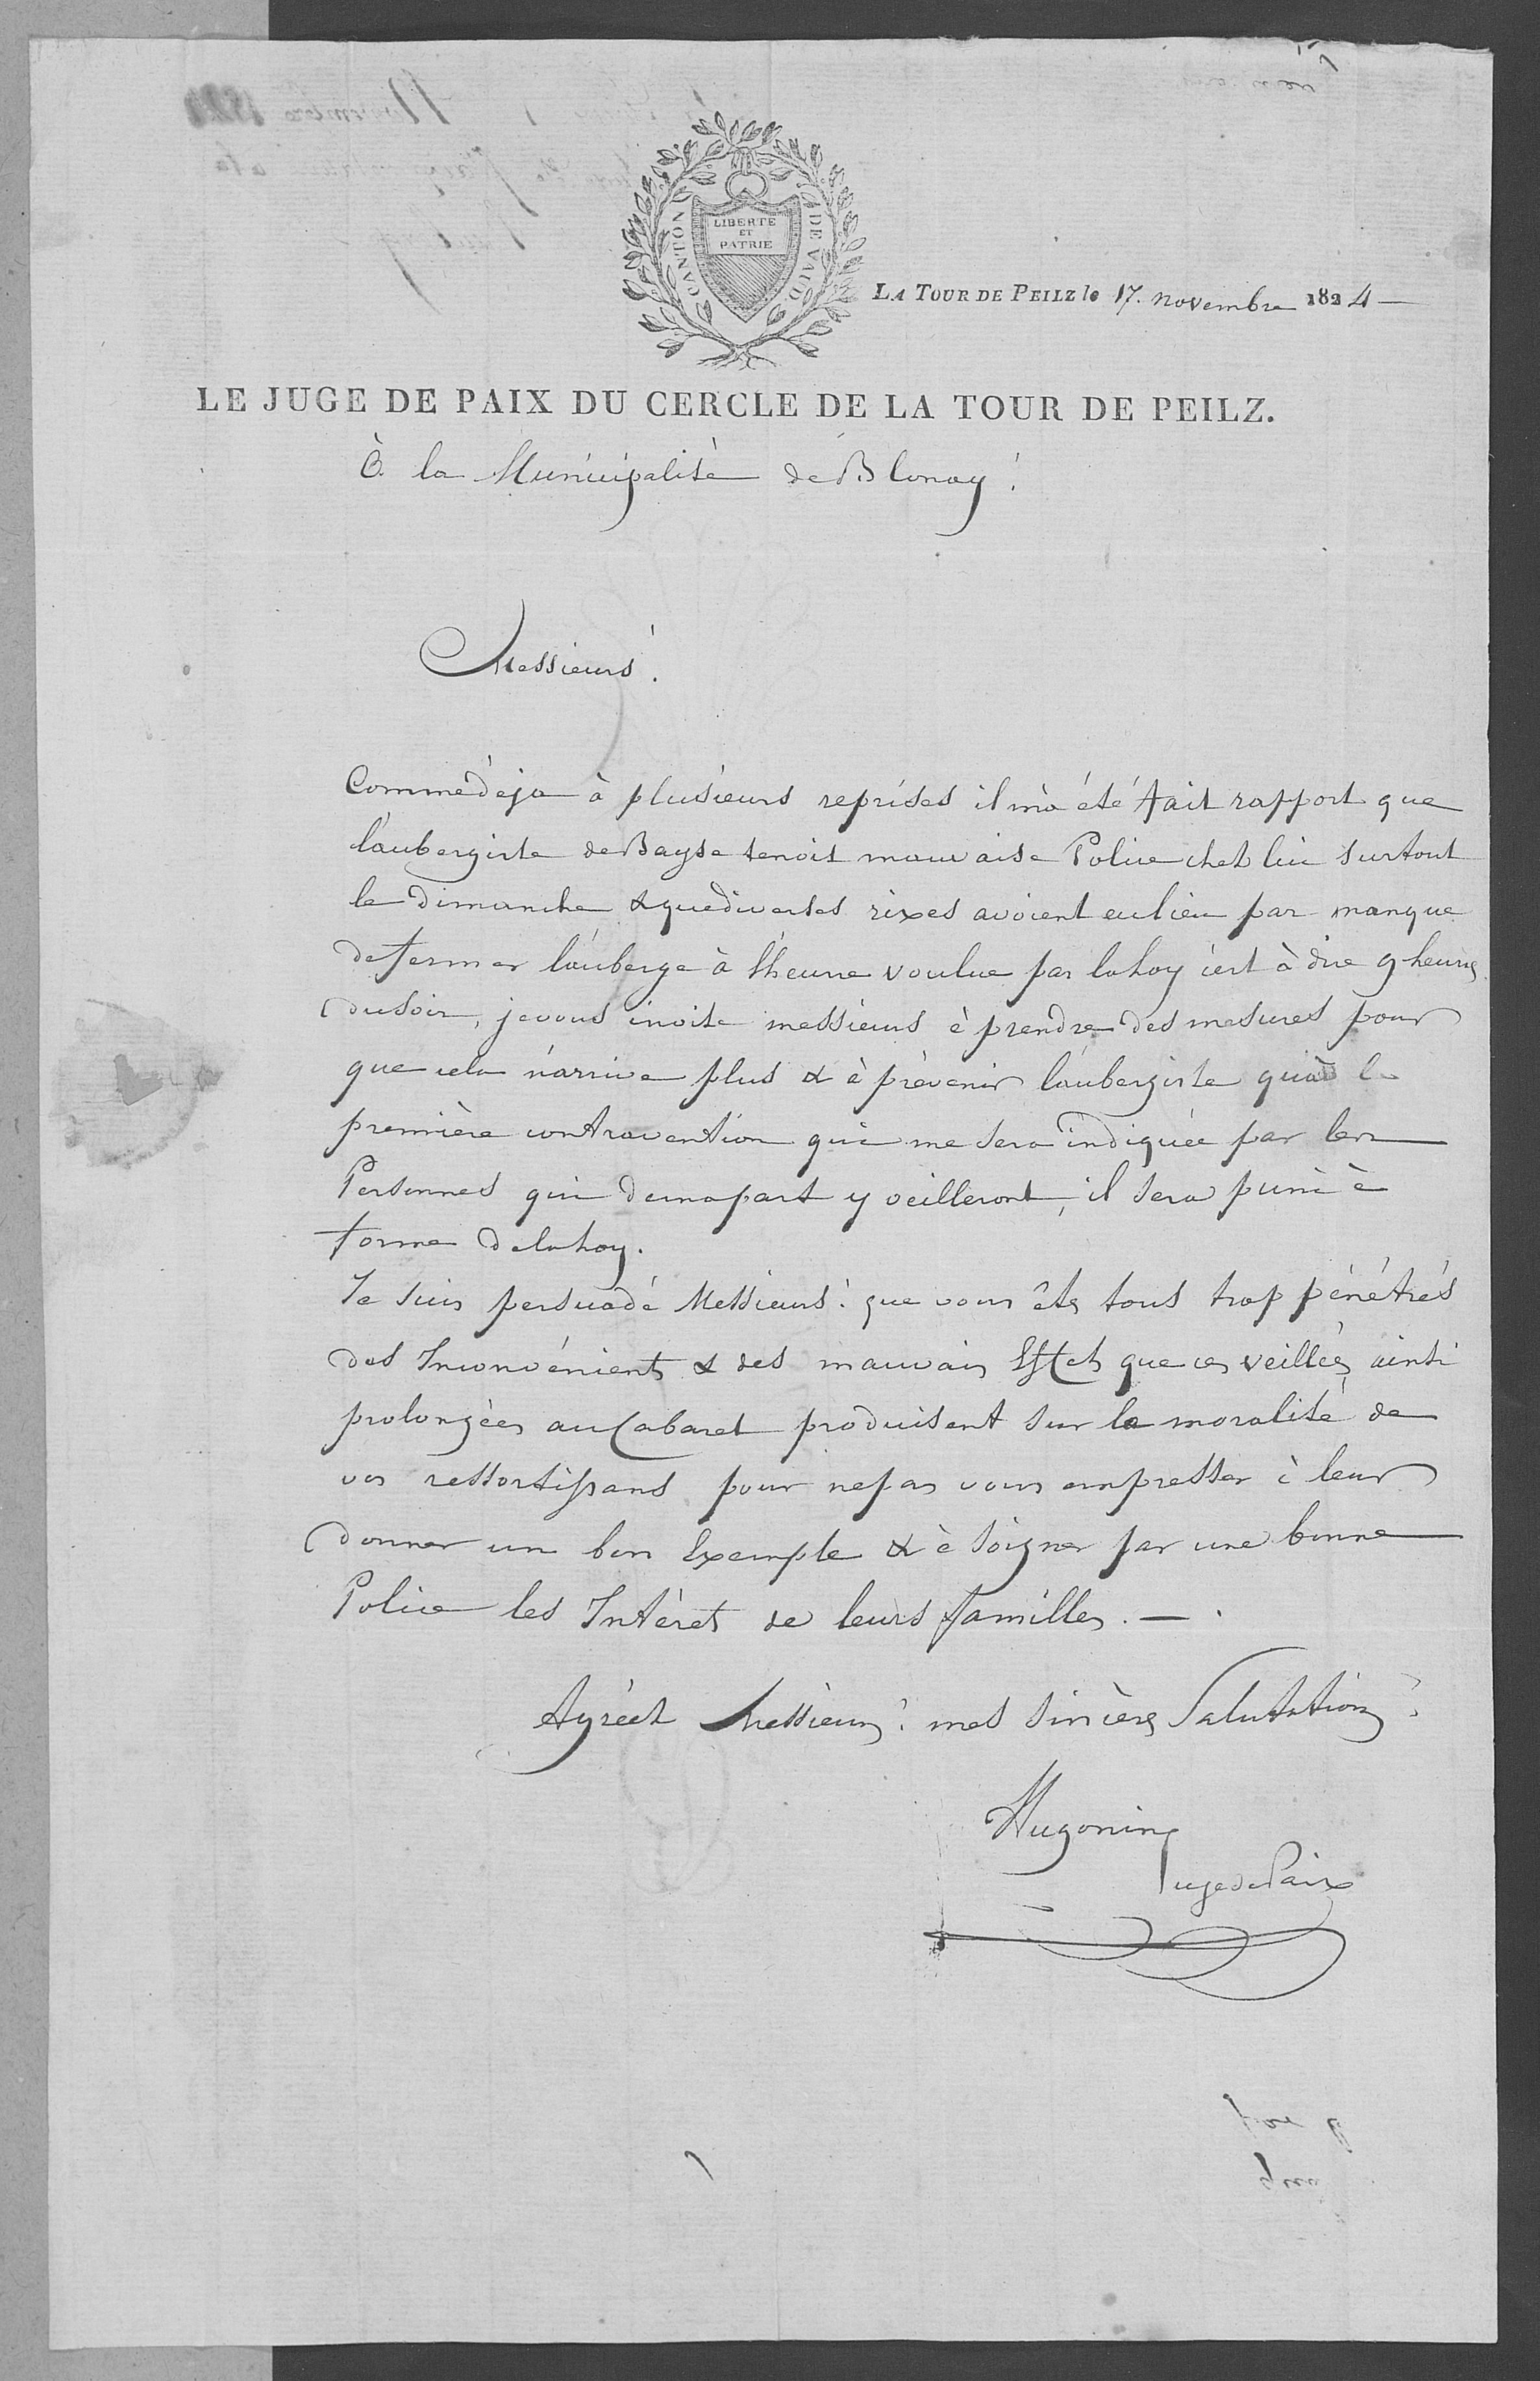 CANTON DE VAUD
LIBERTE
ET
PATRIE
LA TOUR DE PEILZ le 17. novembre 1824
LE JUGE DE PAIX DU CERCLE DE LA TOUR DE PEILZ.
à la Municipalité de Blonay!
Messieurs!
Comme déja à plusieurs reprises il m'a été fait rapport que
l'aubergiste de Bayse tenoit mauvaise Police chez lui surtout
le dimanche & que diverses rixes avoient eu lieu par manque
de fermer l'auberge à l'heure voulue par la Loy c'est à dire 9 heures
du soir, je vous invite messieurs à prendre des mesures pour
que cela n'arrive plus & à prévenir l'aubergiste qu'à la
première contravention qui me sera indiquée par les
Personnes qui de ma part y veilleront, il sera puni à
forme de la Loy.
Je suis persuadé Messieurs! que vous êtes tous trop pénétrés
des Inconvénients & des mauvais Effets que ces veillées ainsi
prolongées au Cabaret produisent sur la moralité de
vos ressortissans pour ne pas vous empresser à leur
donner un bon Exemple & à soigner par une bonne
Police les Intérets de leurs familles. — .
Agréez Messieurs! mes sincères Salutations!
Hugonin
Juge de Paix